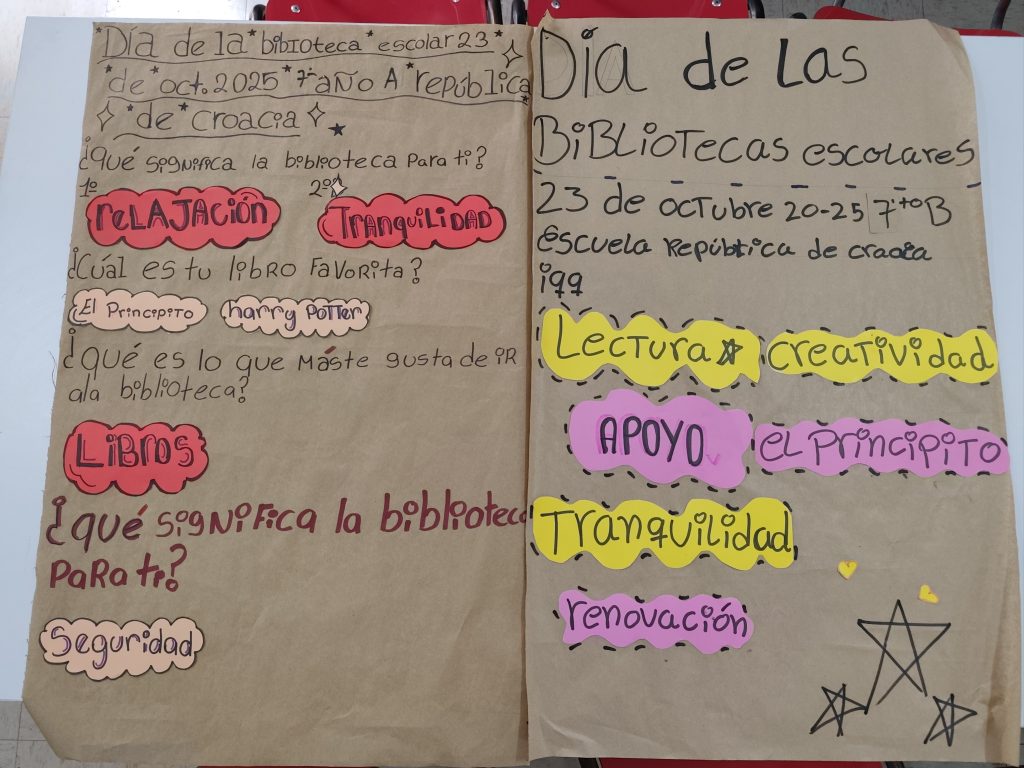 Día de la bibloteca escolar 23
de oct. 2025 7º año A república
de croacia
¿Qué significa la biblioteca para ti?
1º 2º
reLAJACIÓN TRanquiLIDAD
¿Cuál es tu libro favorita?
El Principito harry Potter
¿qué es lo que máste gusta de ir
ala biblioteca?
LIBROS
¿qué significa la biblioteca
para ti?
Seguridad
Día de Las
BiBLioTecas escolares
23 de octubre 20-25 7ºto B
escuela República de
199
Lectura creatividad
APOYO el principito
Tranquilidad
renovación